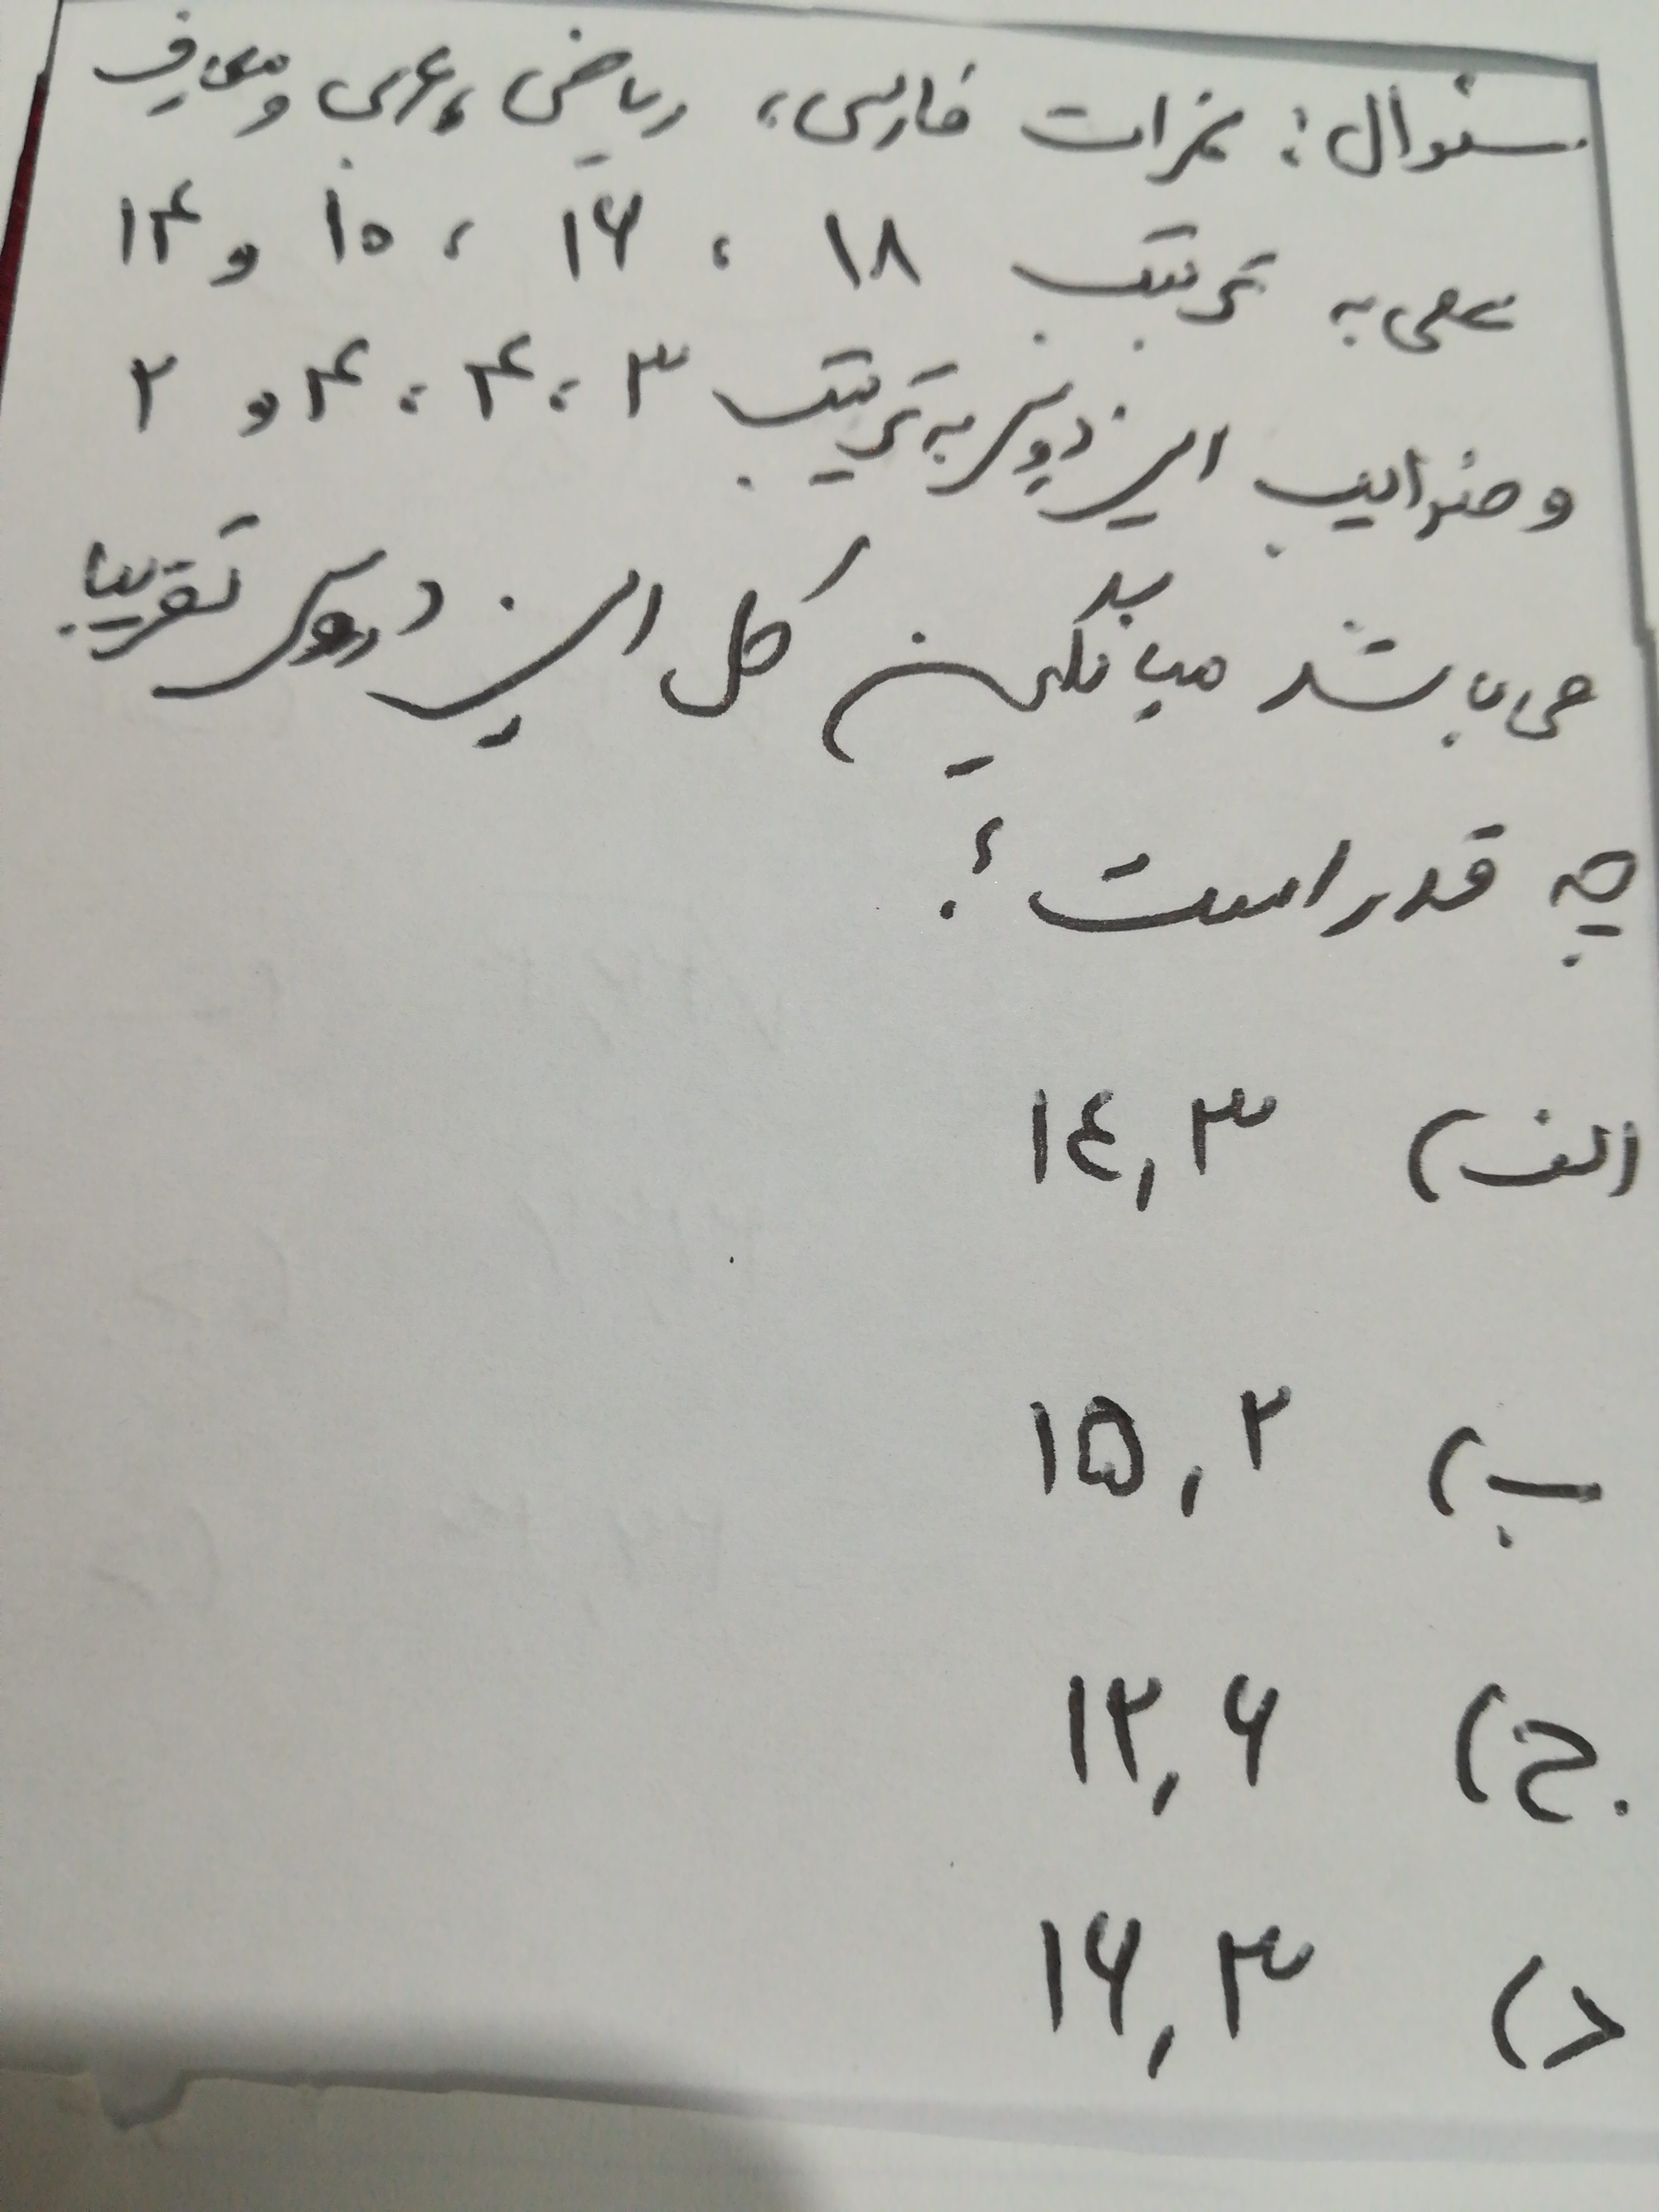 سئوال: نمرات فارسی، ریاضی، عربی و معارف
علی به ترتیب ۱۸ ، ۱۶ ، ۱۰ و ۱۴
و ضرایب این دروس به ترتیب ۳ ، ۴ ، ۴ و ۲
می باشد میانگین کل این دروس تقریبا
چه قدر است؟
الف) ۱٤٫۳
ب) ۱۵٫۲
ج) ۱۲٫۶
د) ۱۶٫۳